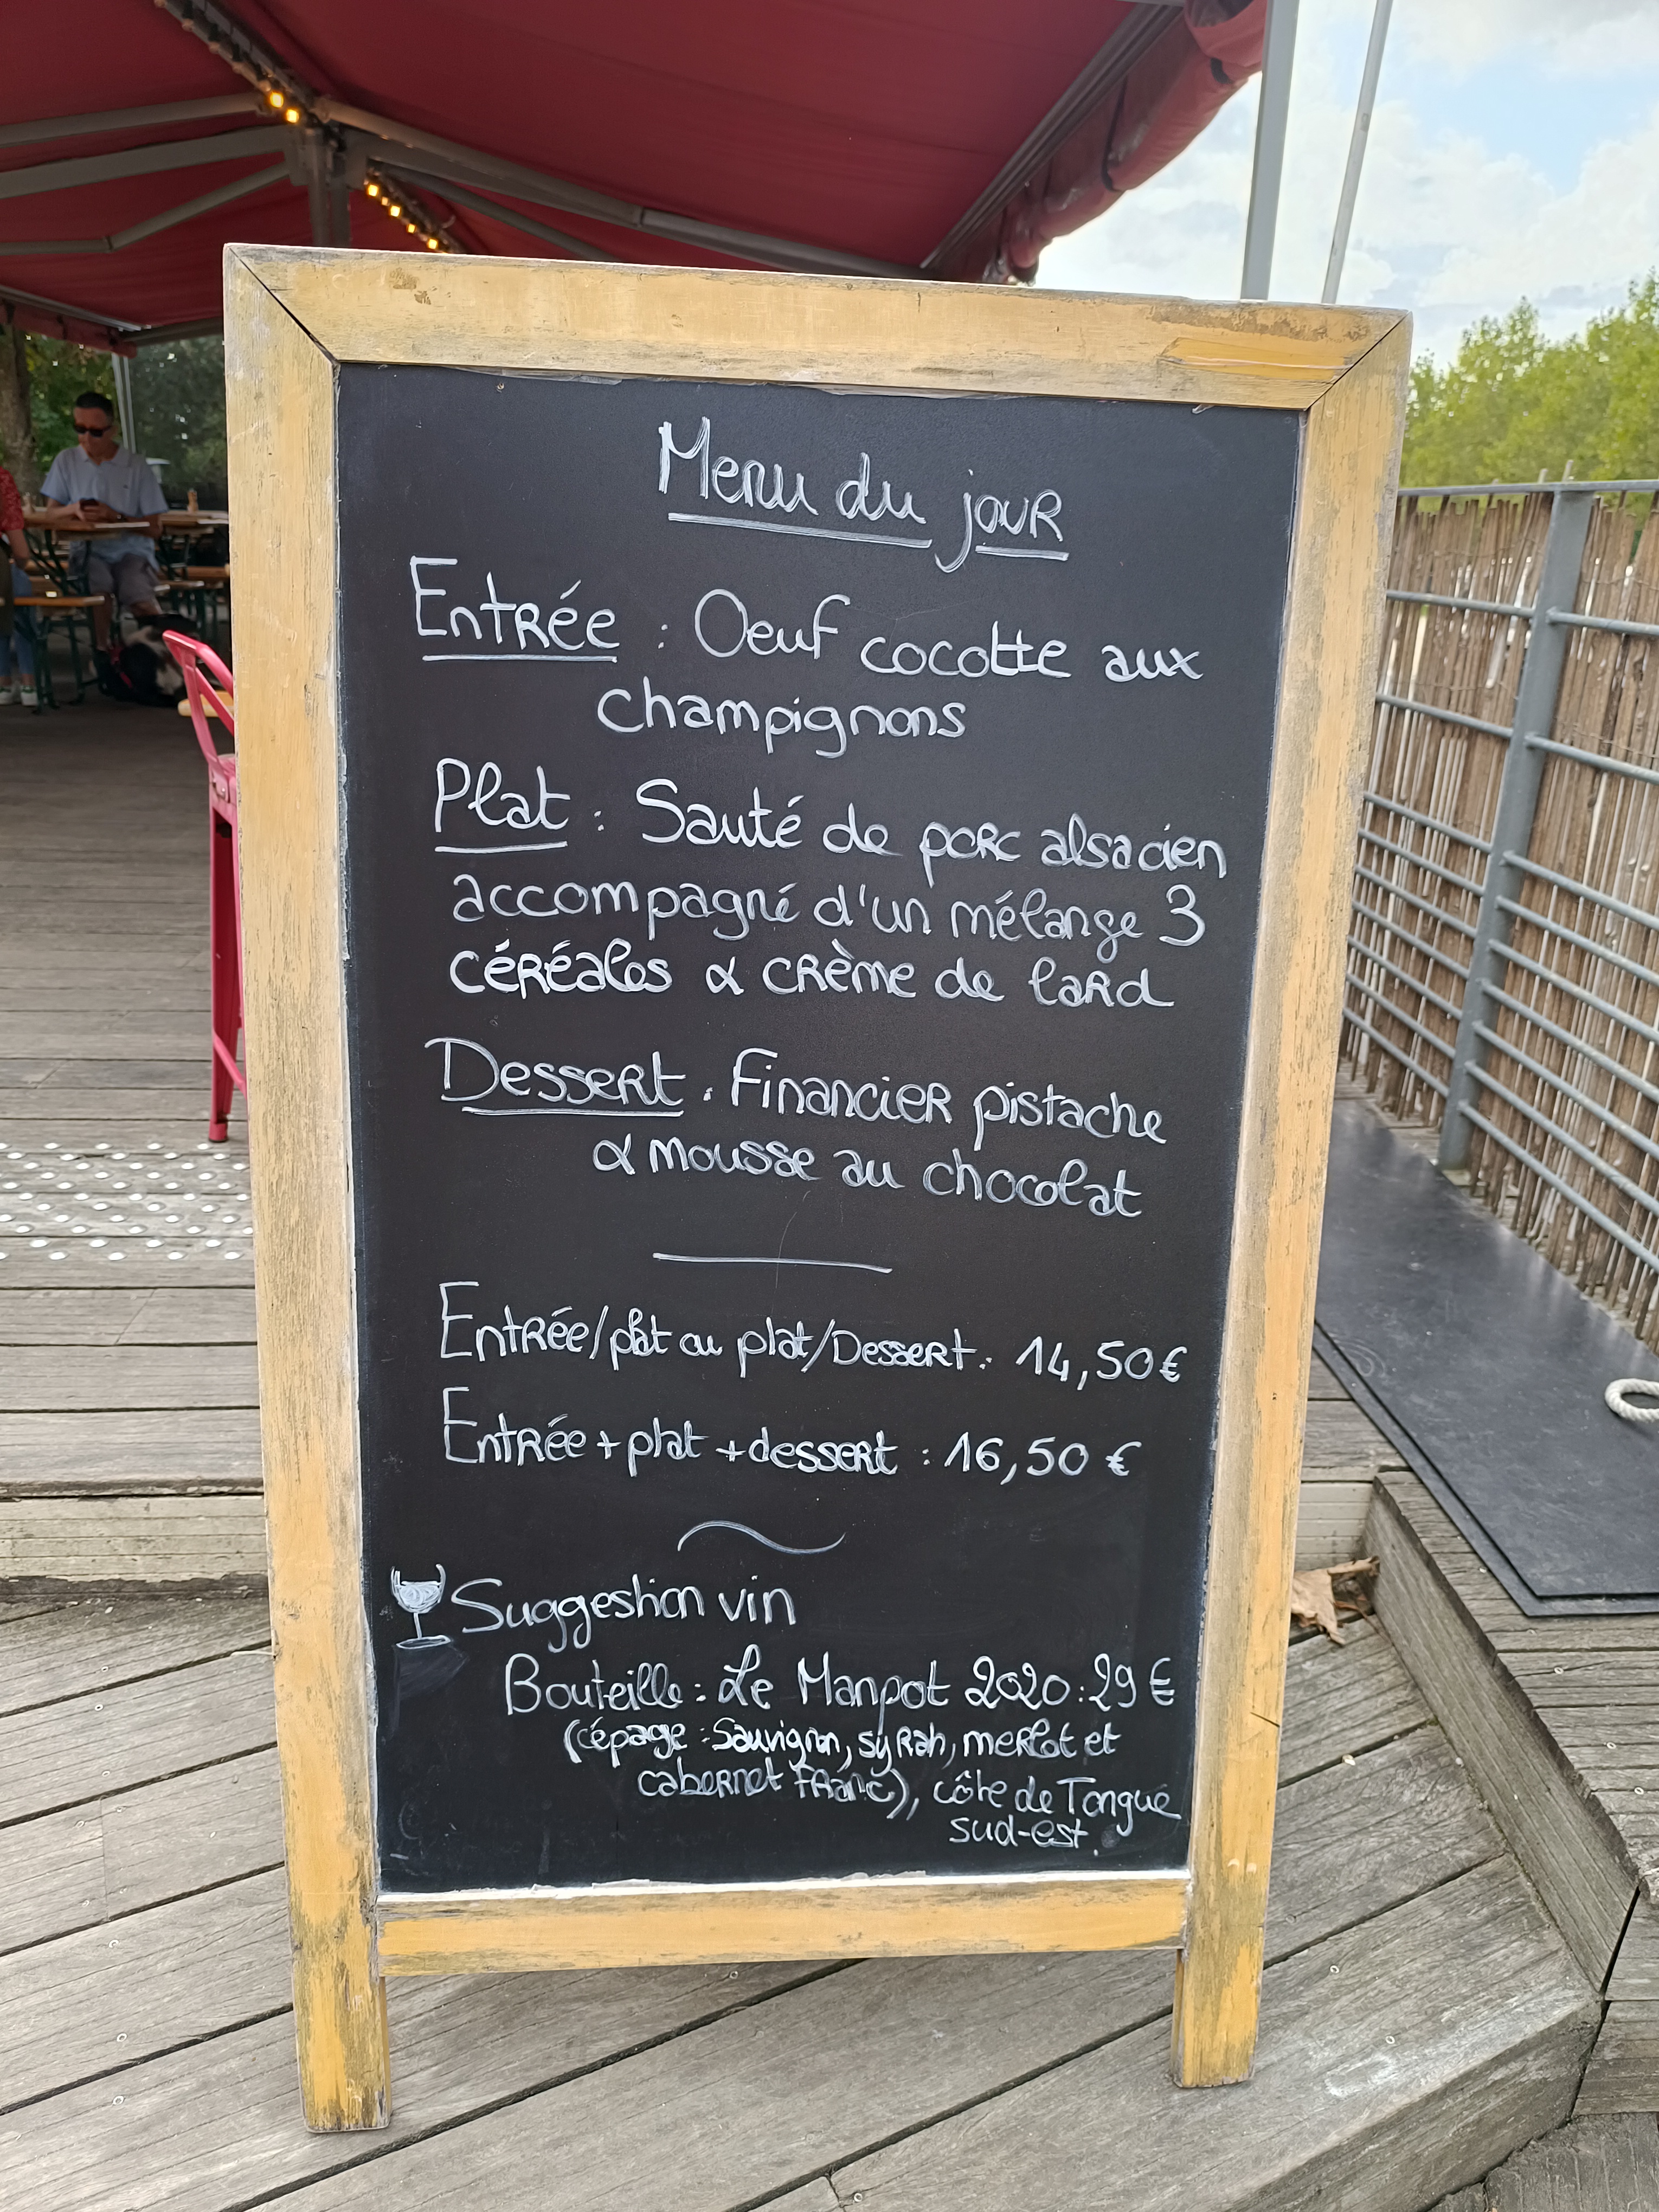 Menu du jour
Entrée : Oeuf cocotte aux
champignons
Plat : Sauté de porc alsacien
accompagné d'un mélange 3
céréales & crème de lard
Dessert : Financier pistache
& mousse au chocolat
Entrée/plat ou plat/Dessert : 14,50€
Entrée + plat + dessert : 16,50 €
Suggestion vin
Bouteille : Le Manpot 2020 : 29 €
(cépage : Sauvignon, syrah, merlot et
cabernet franc), côte de Tongue
sud-est.